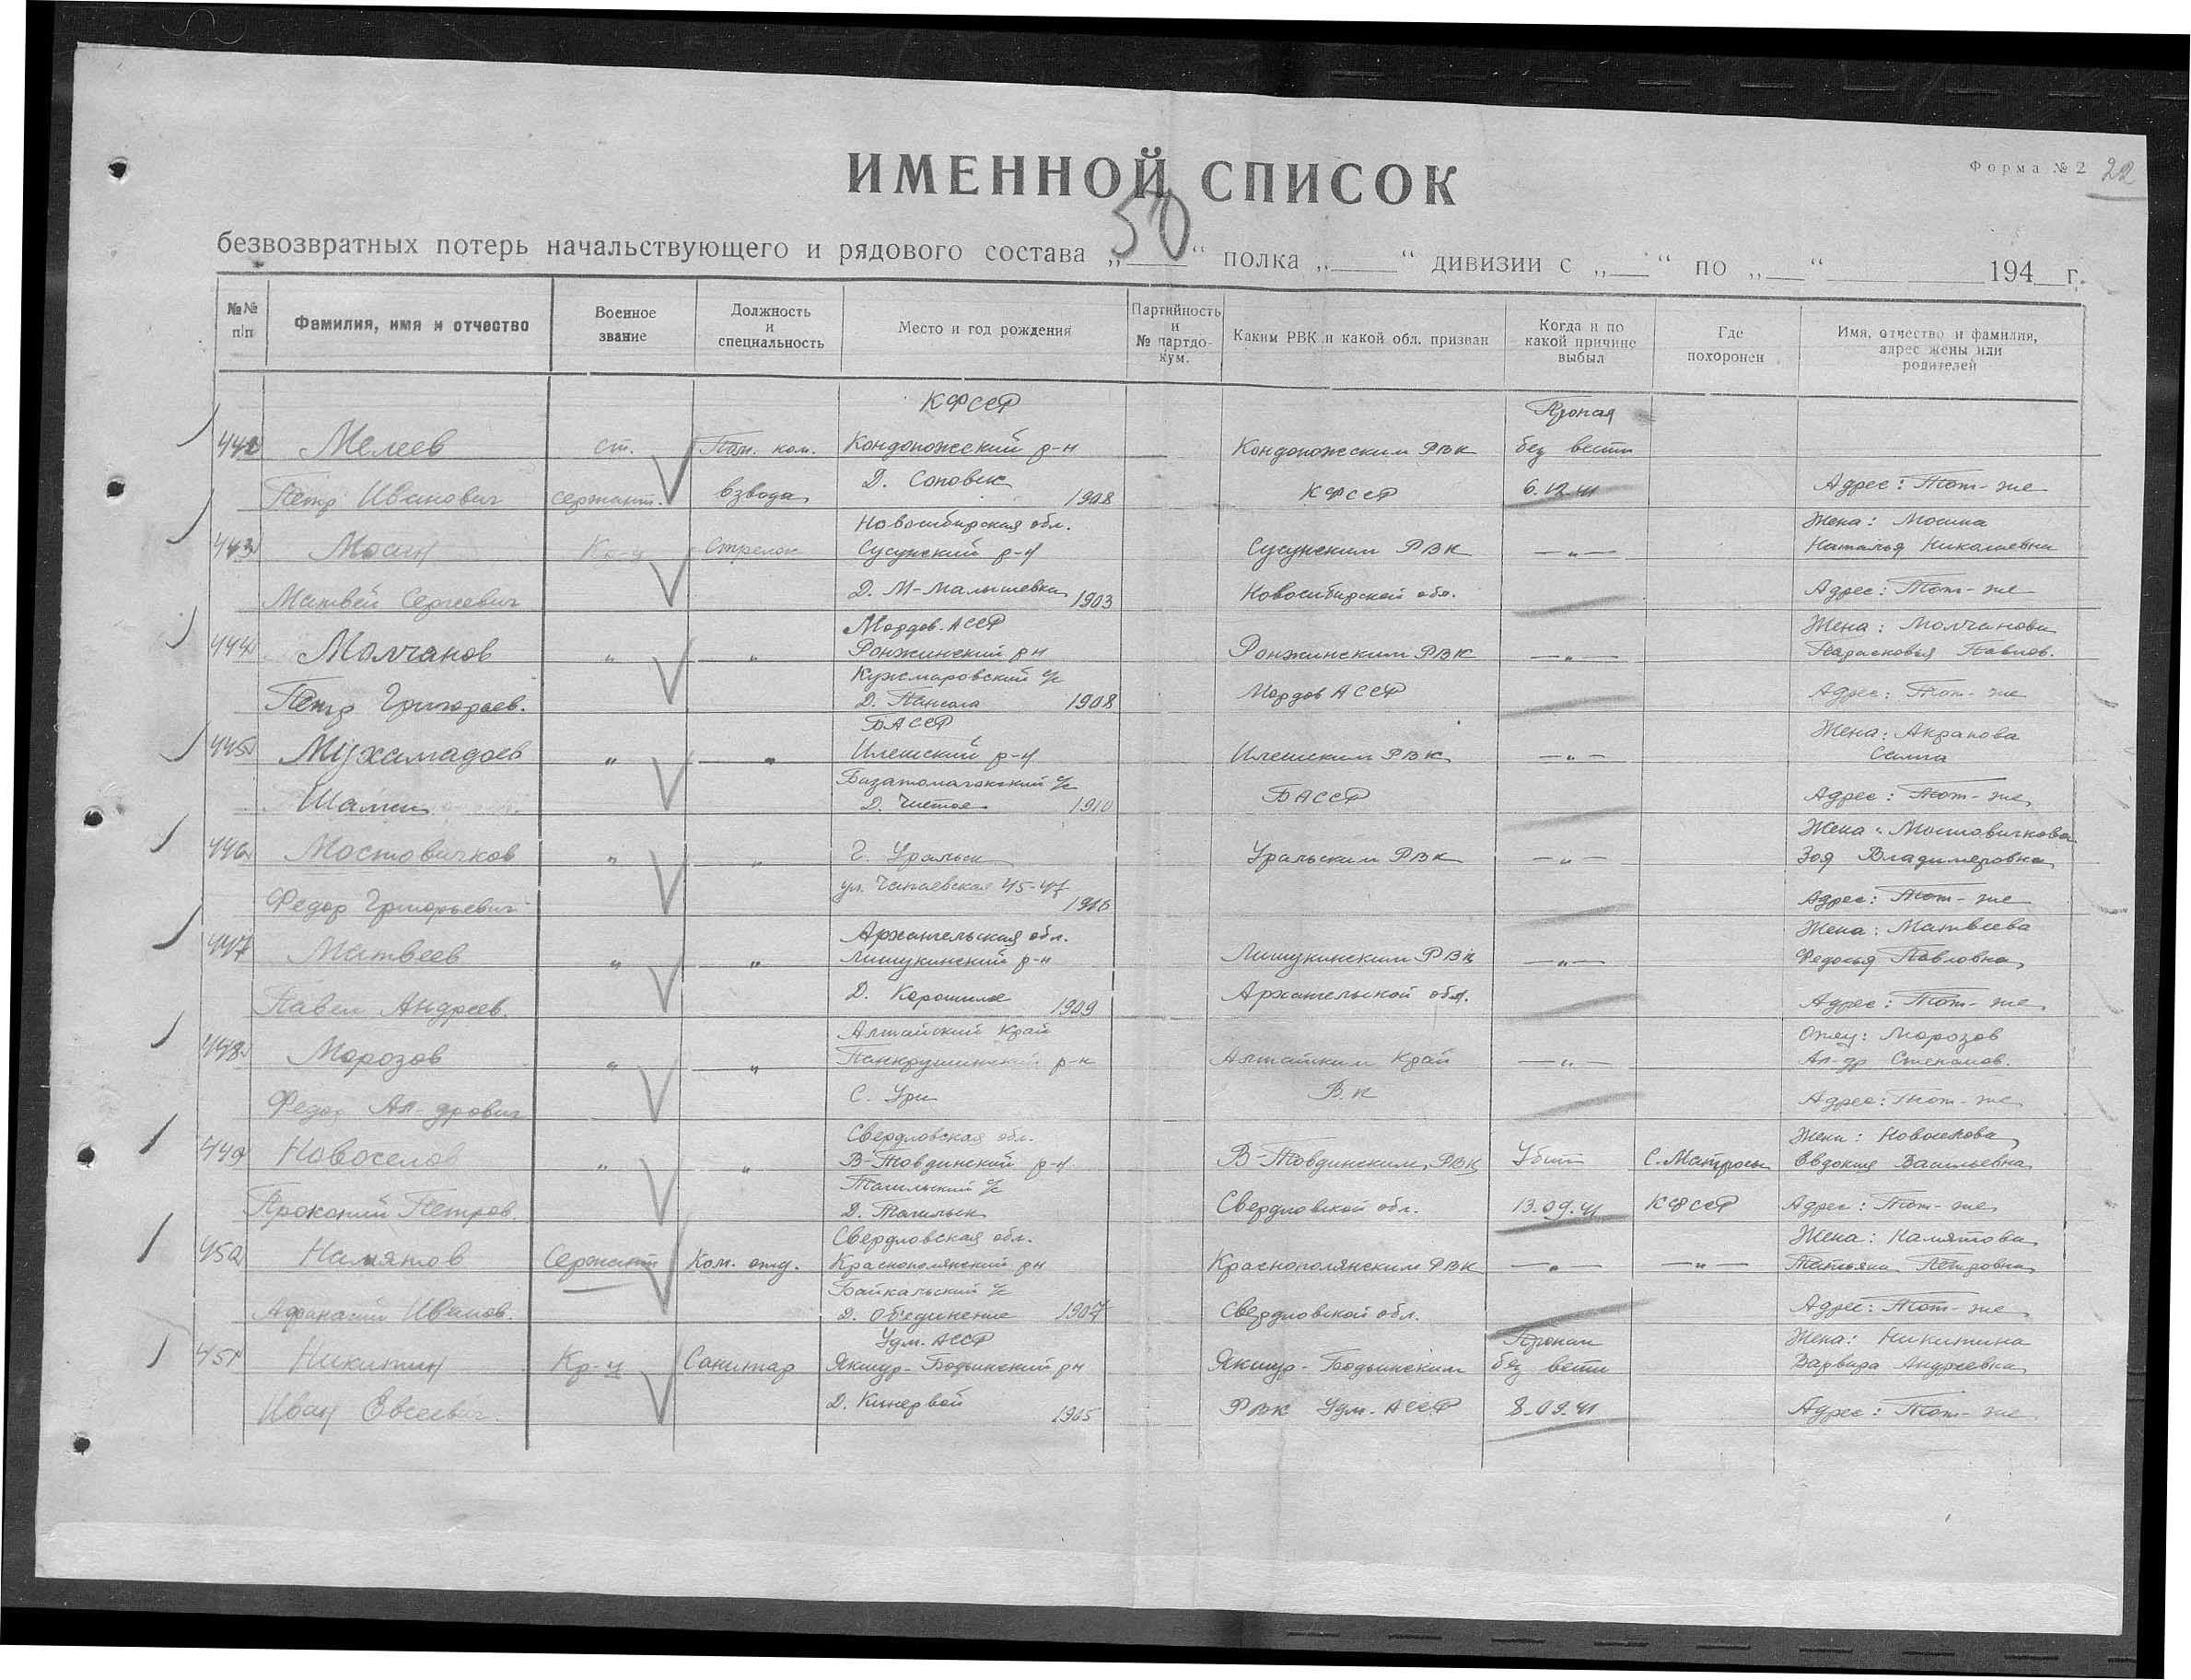 Форма № 2 22
ИМЕННОЙ СПИСОК
50
безвозвратных потерь начальствующего и рядового состава „ “ полка „ “ дивизии с „ “ по „ “ 194 г.
№№ п/п Фамилия, имя и отчество Военное звание Должность и специальность Место и год рождения Партийность и № партдокум. Каким РВК и какой обл. призван Когда и по какой причине выбыл Где похоронен Имя, отчество и фамилия, адрес жены или родителей
КФССР Пропал
442 Мелеев ст. Пом. ком. Кондопожский р-н Кондопожским РВК без вести
Петр Иванович сержант. взвода Д. Соповск 1908 КФССР 6.12.41 Адрес: Тот-же
Новосибирская обл. Жена: Мосина
443 Мосин Кр-ц Стрелок Сузунский р-н Сузунским РВК —"— Наталья Николаевна
Матвей Сергеевич Д. М-Малышевка 1903 Новосибирской обл. Адрес: Тот-же
Мордов. АССР Жена: Молчанова
444 Молчанов " " Ронжинский рн Ронжинским РВК —"— Парасковья Павлов.
Кужмаровский с/с
Петр Григорьев. Д. 1908 Мордов АССР Адрес: Тот-же
БАССР Жена: Акрамова
445 Мухамадоев " " Илешский р-н Илешским РВК —"—
Шамси Д. Чистое 1910 БАССР Адрес: Тот-же
Жена: Мостовичкова
446 Мостовичков " " Г. Уральск Уральским РВК —"— Зоя Владимировна
ул. Чапаевская 45-47
Федор Григорьевич Адрес: Тот-же
Архангельская обл. Жена: Матвеева
447 Матвеев " " Лишукинский р-н Лишукинским РВК —"— Федосья Павловна
Павел Андреев. Д. 1909 Архангельской обл. Адрес: Тот-же
Алтайский Край Отец: Морозов
448 Морозов " " Панкрушинский р-н Алтайским Край —"— Ал-др Степанов.
Федор Ал-дрович С. Урн В.К Адрес: Тот-же
Свердловская обл. Жена: Новоселова
449 Новоселов " " В-Товдинский р-н В-Товдинским РВК Убит С. Матросы Евдокия Васильевна
Тагильский с/с
Прокопий Петров. Д. Тагильск Свердловской обл. 13.09.41 КФССР Адрес: Тот-же
Свердловская обл. Жена: Налятова
450 Налятов Сержант Ком. отд. Краснополянский рн Краснополянским РВК —"— —"— Татьяна Петровна
Байкальский с/с
Афанасий Иванов. Д. Объединение 1907 Свердловской обл. Адрес: Тот-же
Удм. АССР Пропал Жена: Никитина
451 Никитин Кр-ц Санитар Якшур-Бодьинский рн Якшур-Бодьинским без вести Варвара Андреевна
Иван Евсеевич. Д. Кинервай 1905 РВК Удм. АССР 8.09.41 Адрес: Тот-же